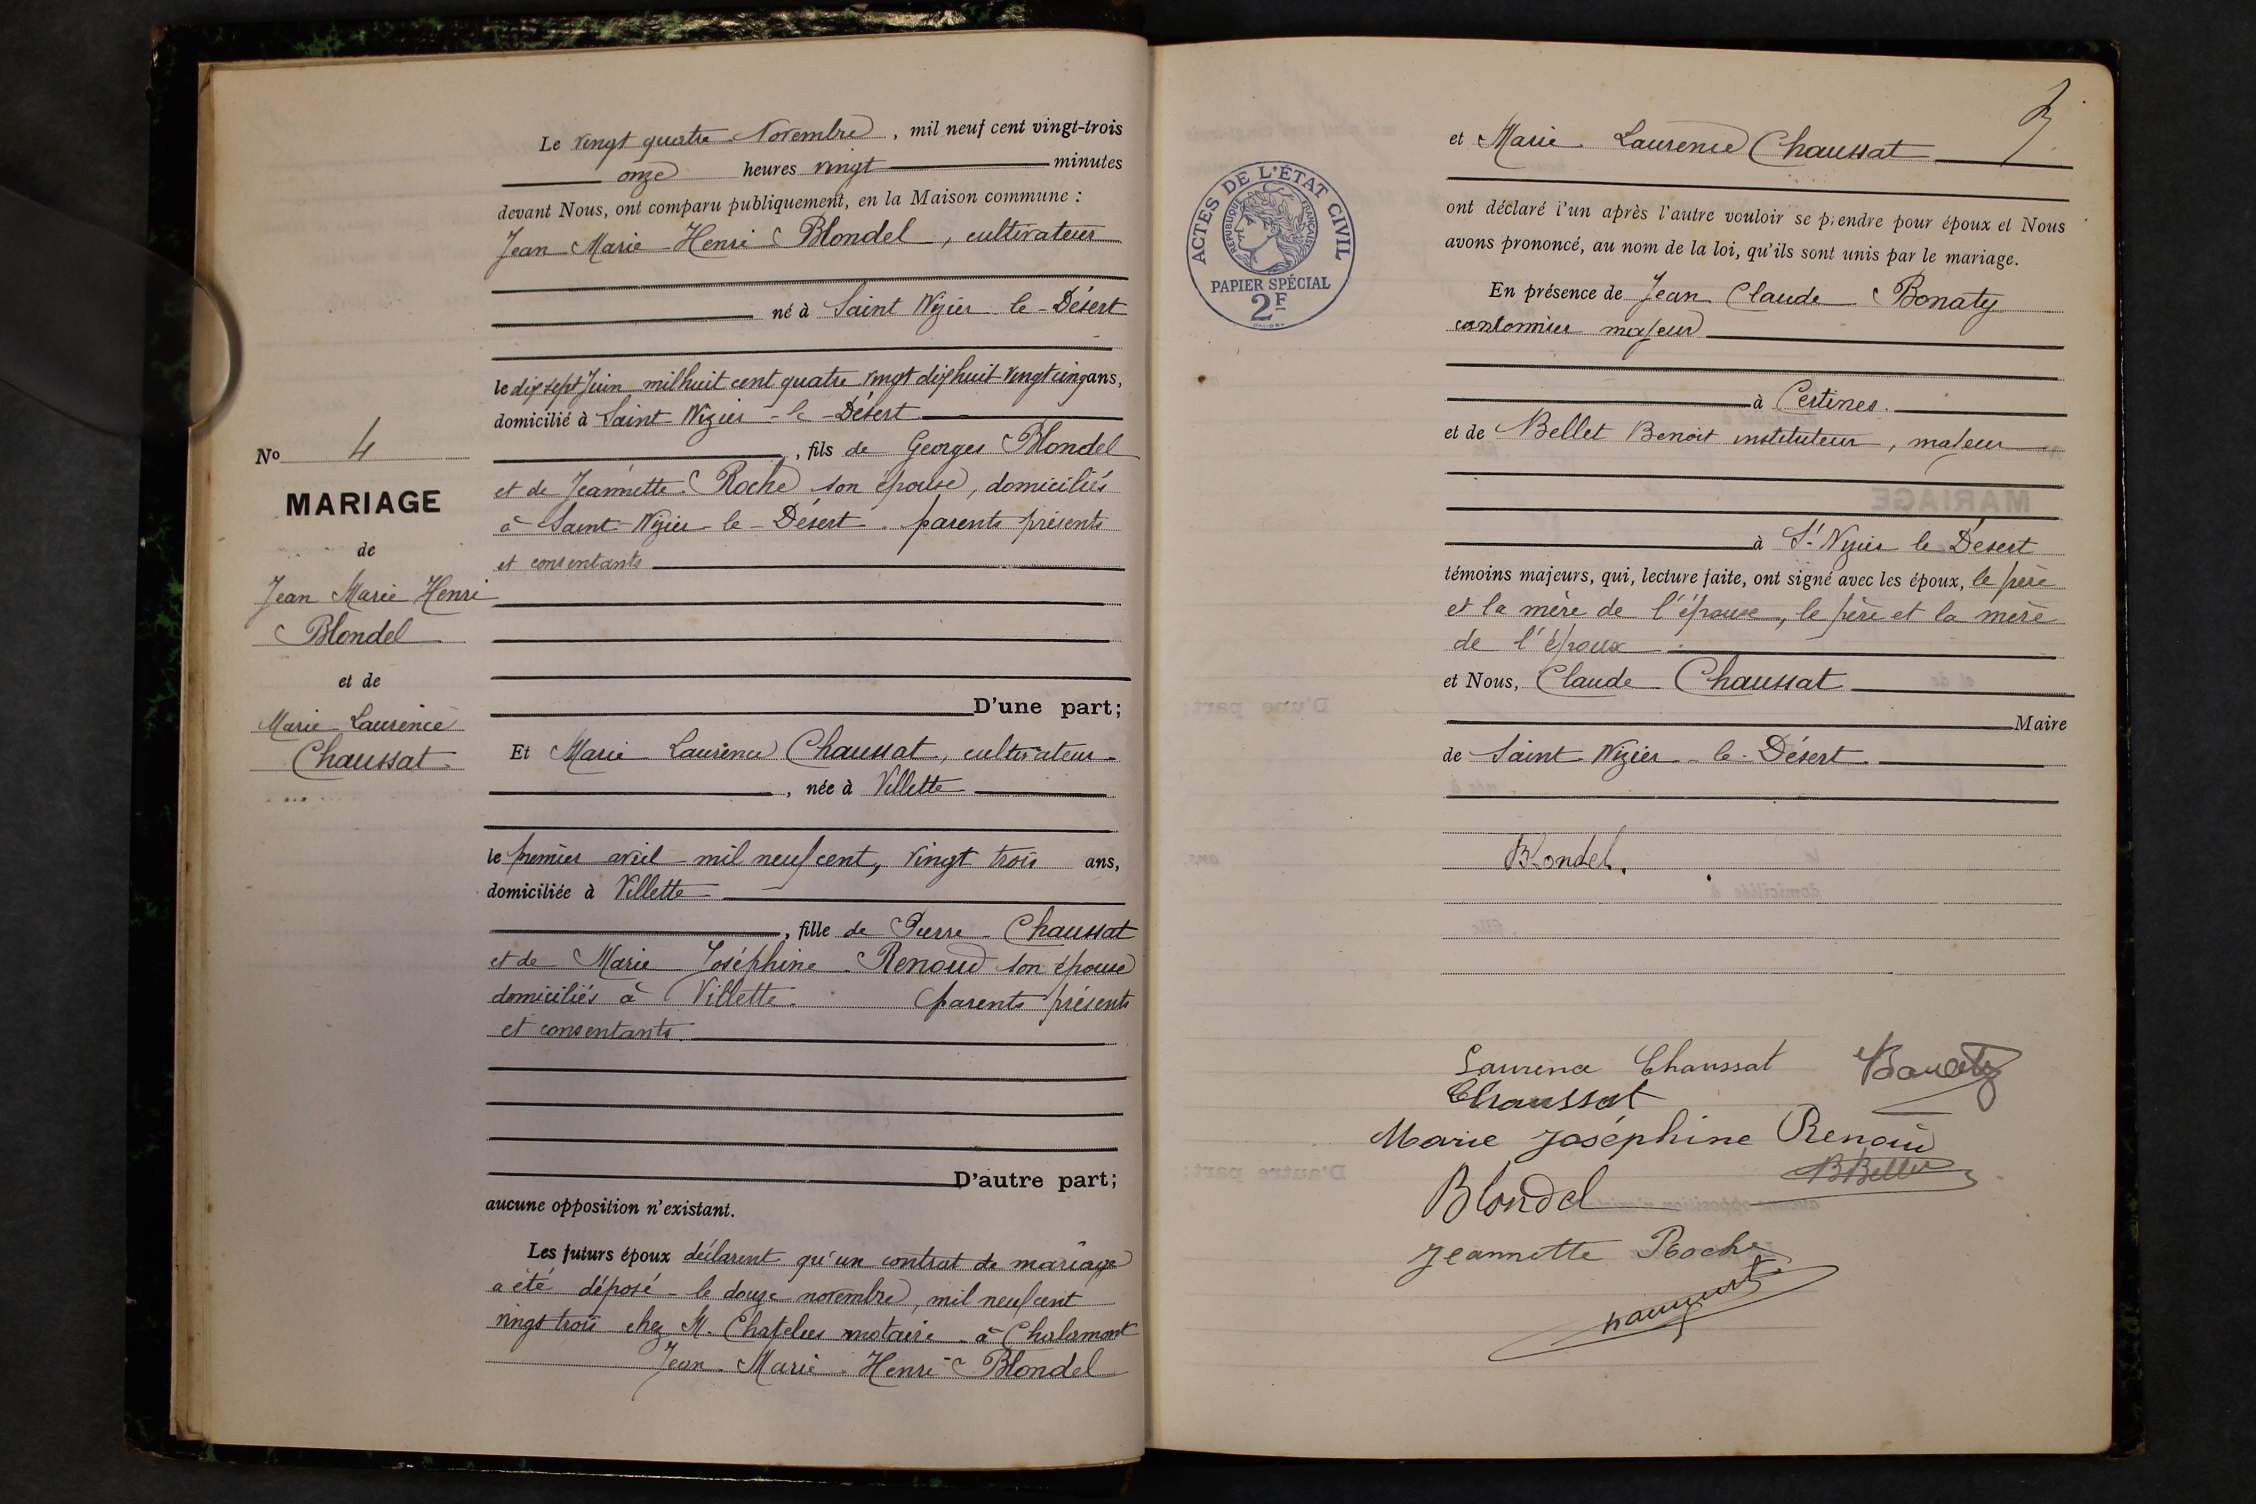 Le vingt quatre Novembre, mil neuf cent vingt-trois
onze heures vingt minutes
devant Nous, ont comparu publiquement, en la Maison commune :
Jean Marie Henri Blondel, cultivateur
né à Saint Nizier le Désert
le dix sept Juin mil huit cent quatre vingt dix huit vingt cinq ans,
domicilié à Saint-Nizier-le-Désert
, fils de Georges Blondel
et de Jeannette Roche son épouse, domiciliés
à Saint-Nizier-le-Désert. parents présents
et consentants
D'une part;
Et Marie Laurence Chaussat, cultivateur
, née à Villette
le premier avril mil neuf cent, vingt trois ans,
domiciliée à Villette
, fille de Pierre Chaussat
et de Marie Joséphine Renoud son épouse
domiciliés à Villette. parents présents
et consentants.
D'autre part;
aucune opposition n'existant.
Les futurs époux déclarent qu'un contrat de mariage
a été déposé le douze novembre, mil neuf cent
vingt trois chez M. notaire à Chalamont
Jean Marie Henri Blondel
No 4
MARIAGE
de
Jean Marie Henri
Blondel
et de
Marie Laurence
Chaussat
3
et Marie Laurence Chaussat
ont déclaré l'un après l'autre vouloir se prendre pour époux et Nous
avons prononcé, au nom de la loi, qu'ils sont unis par le mariage.
En présence de Jean Claude Bonaty
cantonnier majeur
à Certines.
et de Bellet Benoit instituteur, majeur
à St Nizier le Désert
témoins majeurs, qui, lecture faite, ont signé avec les époux, le père
et la mère de l'épouse, le père et la mère
de l'époux.
et Nous, Claude Chaussat
Maire
de Saint Nizier-le-Désert.
ACTES DE L'ÉTAT CIVIL
RÉPUBLIQUE FRANÇAISE
PAPIER SPÉCIAL
2F
Blondel.
Laurence Chaussat Bonaty
Chaussat
Marie Joséphine Renoud
BBellet
Blondel
Jeannette Roche